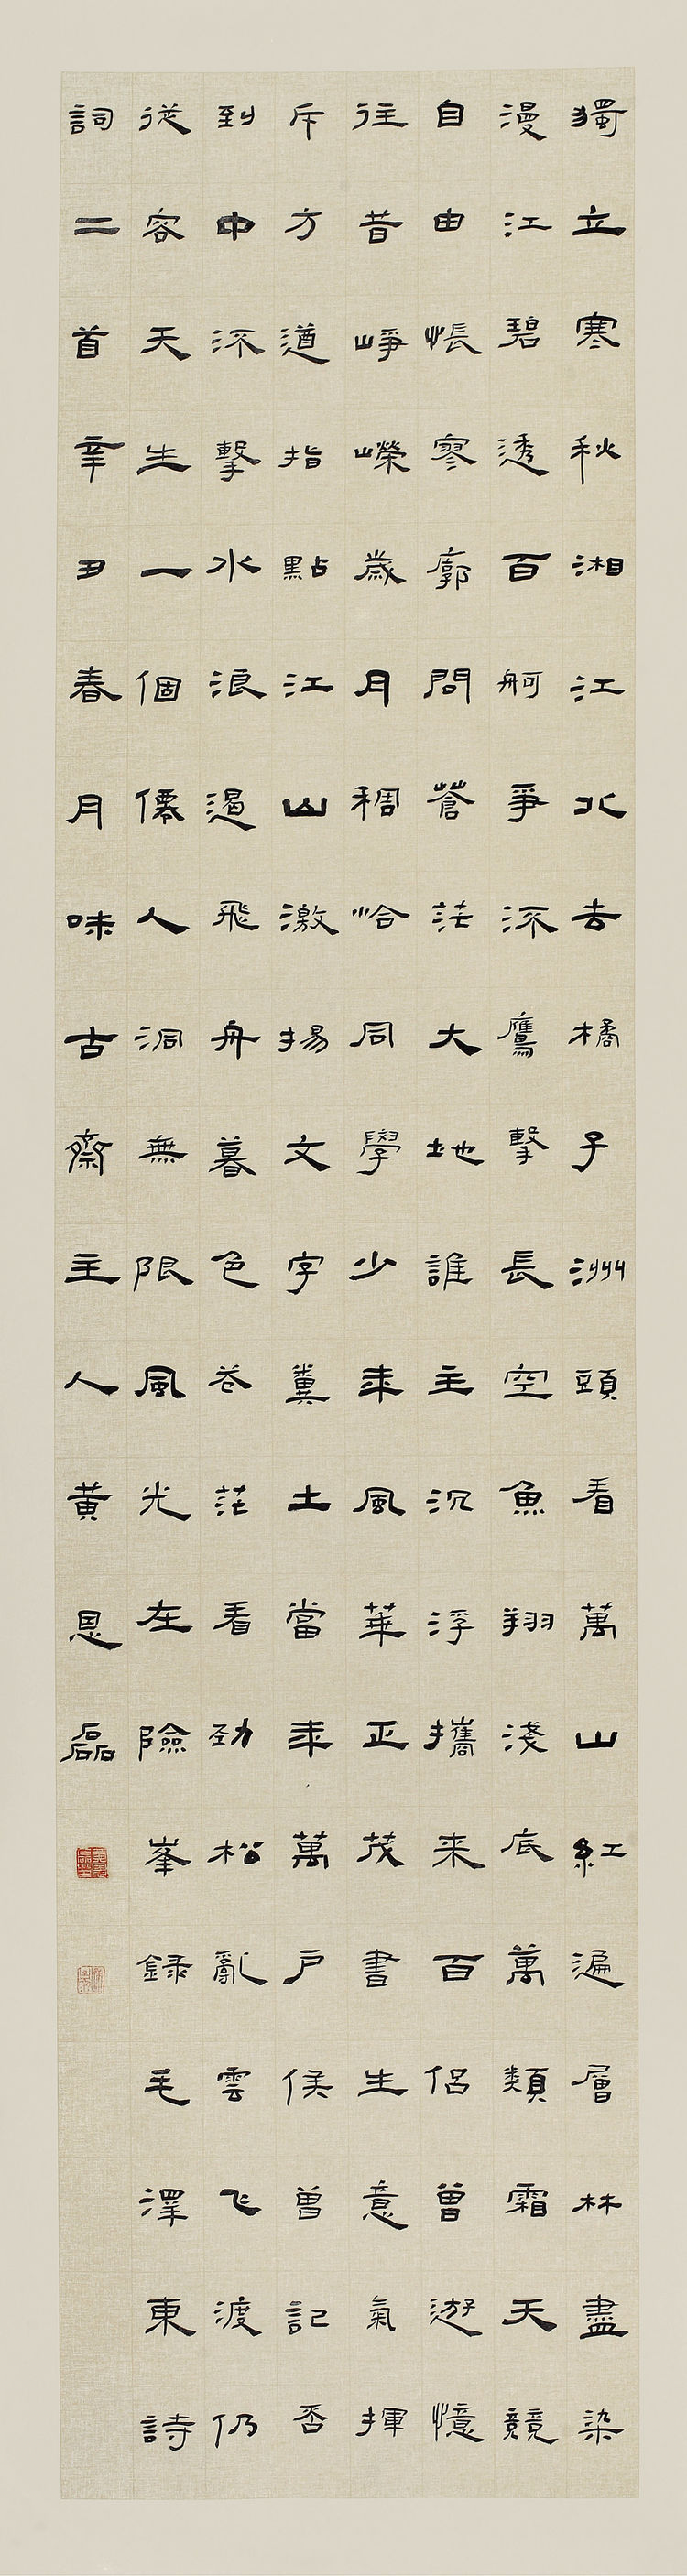 獨立寒秋湘江北去橘子洲頭看萬山紅遍層林盡染
漫江碧透百舸爭流鷹擊長空魚翔淺底萬類霜天競
自由悵寥廓問蒼茫大地誰主沉浮攜来百侶曾遊憶
往昔崢嶸歲月稠恰同學少年風華正茂書生意氣揮
斥方遒指點江山激揚文字糞土當年萬戶侯曾記否
到中流擊水浪遏飛舟暮色苍茫看勁松亂雲飞渡仍
從容天生一個僊人洞無限風光在險峯録毛澤東詩
詞二首辛丑春月味古齋主人黃恩磊